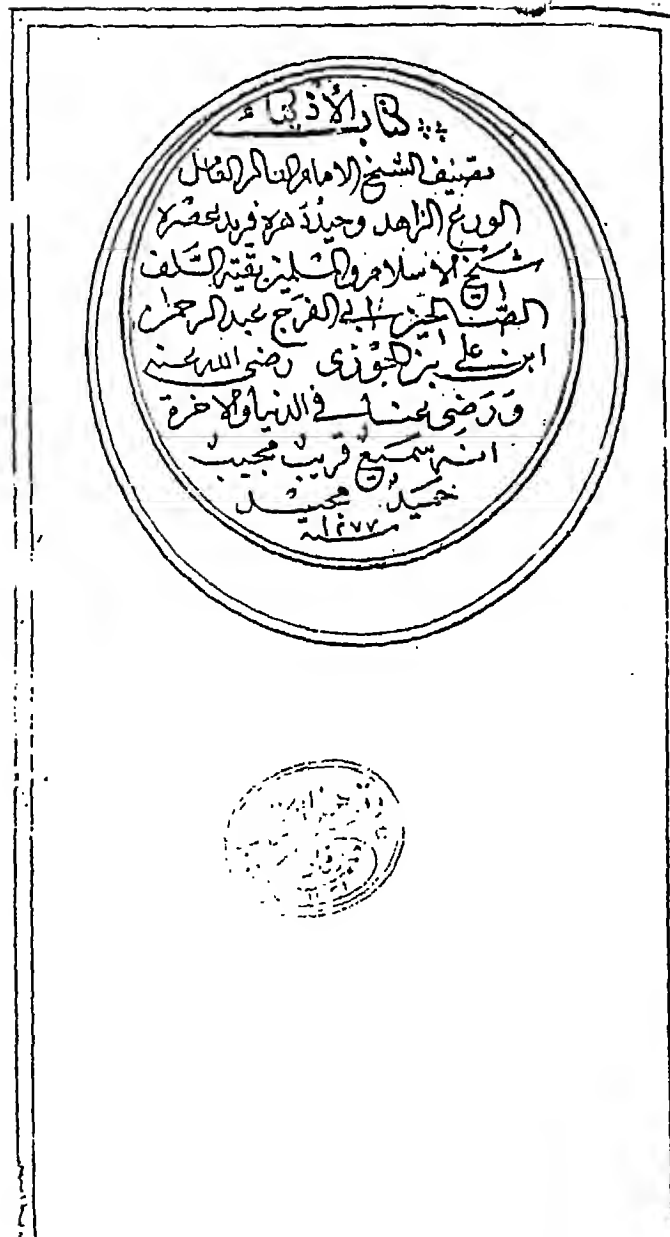 كتاب الأذكياء
تصنيف الشيخ الامام العالم العامل
الورع الزاهد وحيد دهره فريد عصره
شيخ الاسلام والمسلمين بقية السلف
الصالحين ابي الفرج عبد الرحمن
ابن علي ابن الجوزى رضى الله عنه
وَرَضى عنا فى الدنيا والاخرة
انه سميعٌ قريبٌ مجيبٌ
حميدٌ مجيد
سنة ١٢٧٧